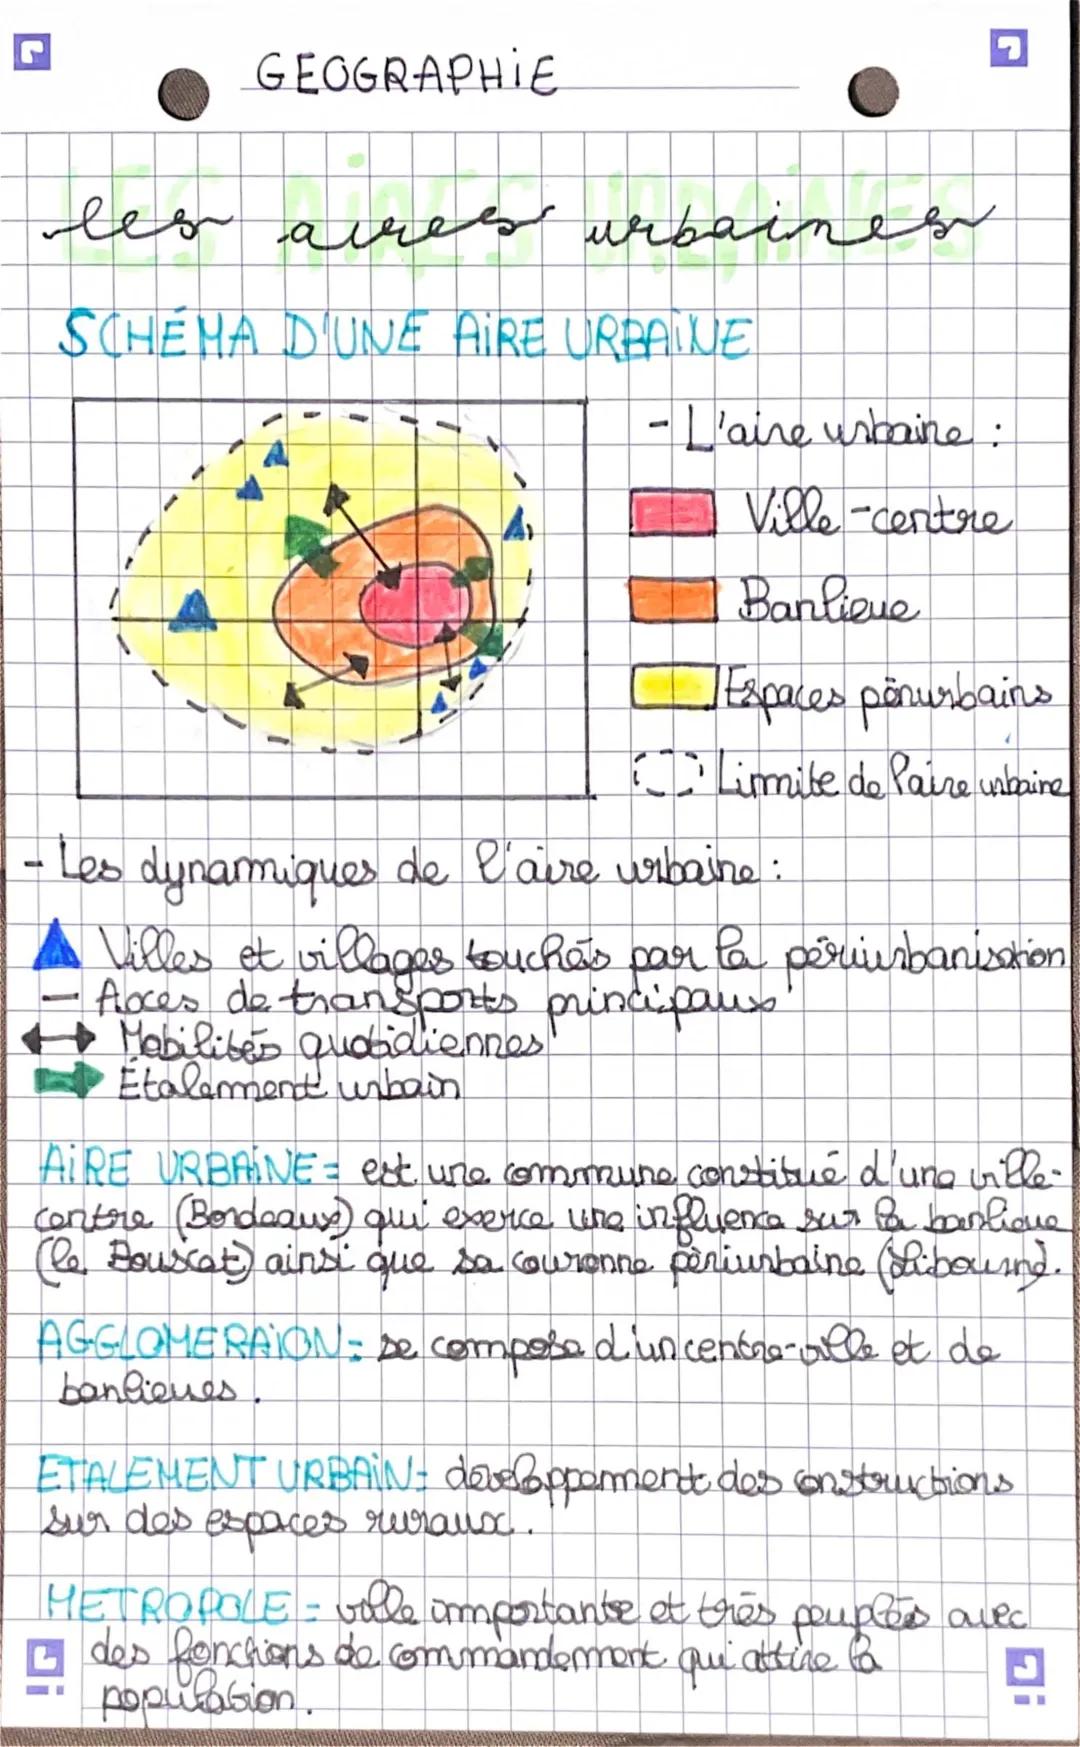 GEOGRAPHiE
LES AiRES URBAiNES
les aires urbaines
SCHÉMA D'UNE AiRE URBAiNE
- L'aire urbaine :
Ville-centre
Banlieue
Espaces périurbains
Limite de l'aire urbaine
- Les dynamiques de l'aire urbaine :
Villes et villages touchés par la périurbanisation
Axes de transports principaux
Mobilités quotidiennes
Étalement urbain
AiRE URBAiNE = est une commune constitué d'une ville-
centre (Bordeaux) qui exerce une influence sur la banlieue
(le Bouscat) ainsi que sa couronne périurbaine (Libourne).
AGGLOMERAiON = se compose d'un centre-ville et de
banlieues.
ETALEMENT URBAiN = développement des constructions
sur des espaces ruraux.
METROPOLE = ville importante et très peuplés avec
des fonctions de commandement qui attire la
population.